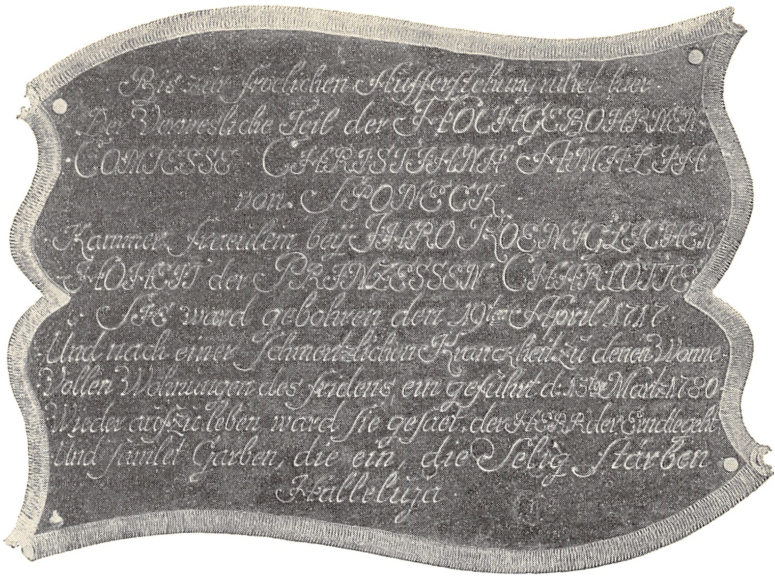 Bis zur froelichen Aufferstehung ruhet hier
Der Verwesliche Teil der HOCHGEBOHRNEN
COMTESSE CHRISTIANA AMALIA
von SPONECK
Kammer Fraeulein beÿ IHRO KOENIGLICHEN
HOHEIT der PRINZESSEN CHARLOTTE
SIE ward gebohren den 19ten April 1717
Und nach einer Schmertzlichen Kranckheit zu denen Wonne-
Vollen Wohnungen des fridens ein geführt d: 15te Martz 1780
Wieder aufzu leben ward sie gesaet, der HERR der Erndte geht
Und samlet Garben, die ein, die Selig Starben
Halleluja